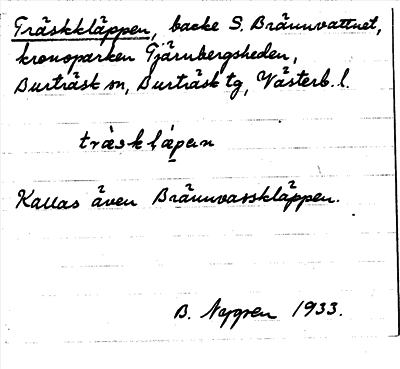 Träskkläppen, backe S. Brännvattnet,
kronoparken Tjärnbergsheden,
Burträsk sn, Burträsk tg, Västerb. l.
träskläpən
Kallas även Brännvasskläppen.
B. Nygren 1933.